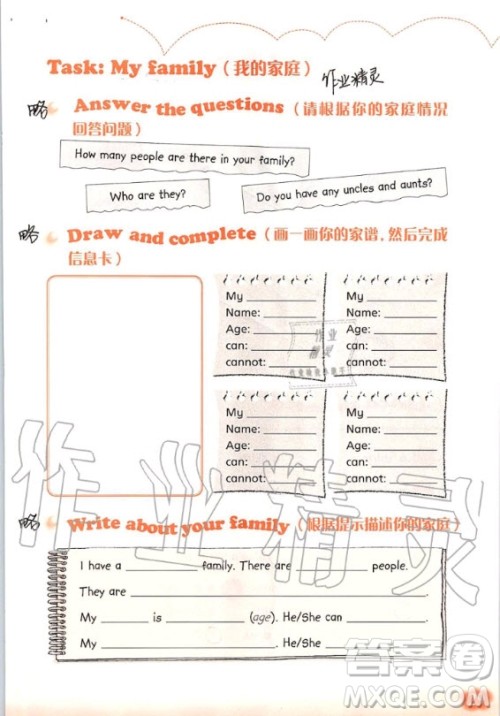 Task: My family（我的家庭）
作业精灵
略 Answer the questions（请根据你的家庭情况
回答问题）
How many people are there in your family?
Who are they?
Do you have any uncles and aunts?
略 Draw and complete（画一画你的家谱,然后完成
信息卡）
My
Name:
Age:
can:
cannot:
My
Name:
Age:
can:
cannot:
My
Name:
Age:
can:
cannot:
My
Name:
Age:
can:
cannot:
作业精灵
略 Write about your family（根据提示描述你的家庭）
I have a ________ family. There are ________ people.
They are ________.
My ________ is ________ (age). He/She can ________.
My ________. He/She ________.
答案圈
MXQE.COM